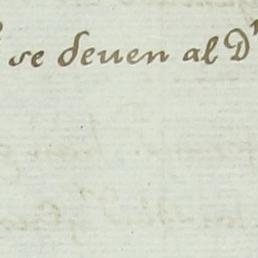 se deven al Dr